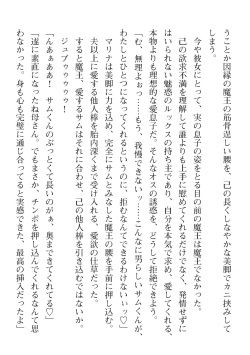 うことか因縁の魔王の筋骨逞しい腰を、己の長くしなやかな美脚でカニ挟みして
しまう。
今や彼女にとって、実の息子の姿をとる目の前の魔王は魔王でなかった。
己の欲求不満を理解して誰よりも上手に慰めてくれるだけでなく、発情せずに
はいられない魅惑のルックスの持ち主であり、自分を本気で求め、愛してくれる、
本物よりも理想的な愛息子だ。そんなオスの誘惑を、どうして拒絶できよう。
「む、無理よぉ……もう、我慢できないっ？……こんなに男らしいサムくんが、
わたしとひとつになってくれるというのに、拒むなんてできるわけないいッ♡」
マリナは美脚に力を込め、完全にサムとみなした魔王の腰を、ぐっと押し込む。
夫以上に、愛する他人棒を胎内深くまで受け入れる、愛欲の仕草だった。
すると魔王、愛するサムはそれに合わせ、己の他人棒を引き込むではないか。
ジュプゥゥゥゥゥ！
「んあぁぁあ！　サムくんのぶっとくて長いのがぁ、奥まできてくれてる♡」
「遂に素直になったね母さん。でもまさか、チンポを押し込んでくれるなんて思
わなかった。身も心も完璧に通じ合ってると実感できた、最高の挿入だったよ」